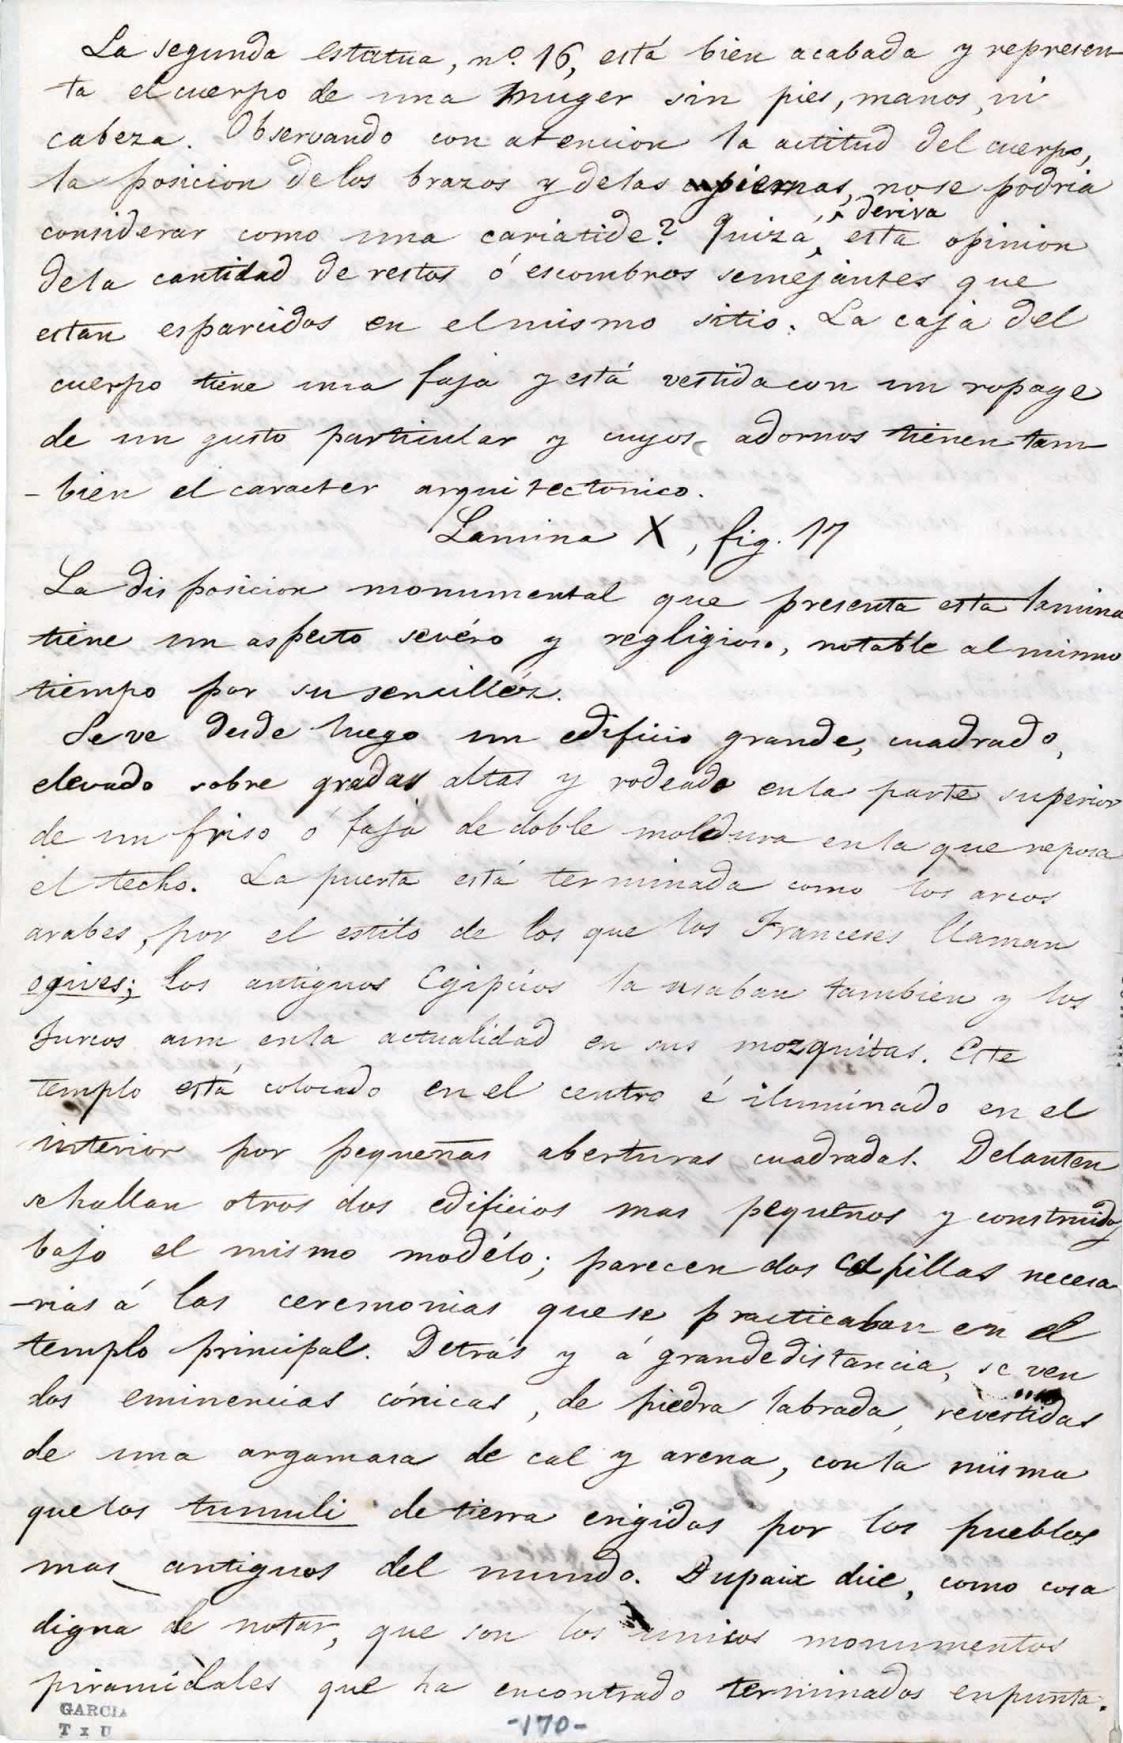 La segunda estatua, nº 16, está bien acabada y represen-
ta el cuerpo de una muger sin pies, manos, ni
cabeza. Observando con atencion la actitud del cuerpo,
la posicion de los brazos y de las piernas, no se podria
considerar como una cariatide? Quizá, deriva esta opinion
de la cantidad de restos ó escombros semejantes que
estan esparcidos en el mismo sitio. La caja del
cuerpo tiene una faja y está vestida con un ropage
de un gusto particular y cuyos adornos tienen tam-
-bien el caracter arquitectonico.
Lamina X, fig. 17
La disposicion monumental que presenta esta lamina
tiene un aspecto sevéro y regligioso, notable al mismo
tiempo por su sencilléz.
Se ve desde luego un edificio grande, cuadrado,
elevado sobre gradas altas y rodeado en la parte superior
de un friso ó faja de doble moldura en la que reposa
el techo. La puerta está terminada como los arcos
arabes, por el estilo de los que los Franceses llaman
ogives; los antiguos Egipcios la usaban tambien y los
Turcos aun en la actualidad en sus mozquitas. Este
templo está colocado en el centro é iluminado en el
interior por pequeñas aberturas cuadradas. Delante
se hallan otros dos edificios mas pequeños y construidos
bajo el mismo modélo; parecen dos capillas necesa-
-rias á las ceremonias que se practicaban en el
templo principal. Detrás y á grande distancia, se ven
dos eminencias cónicas, de piedra labrada, revestidas
de una argamasa de cal y arena, con la misma
que los tumuli de tierra erigidos por los pueblos
mas antiguos del mundo. Dupaix dice, como cosa
digna de notar, que son los unicos monumentos
piramidales que ha encontrado terminados en punta.
GARCIA
T x U
-170-